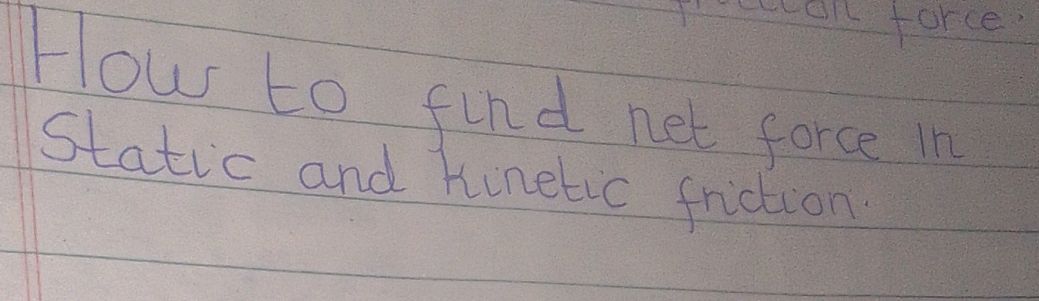 force.
How to find net force in
Static and kinetic friction.